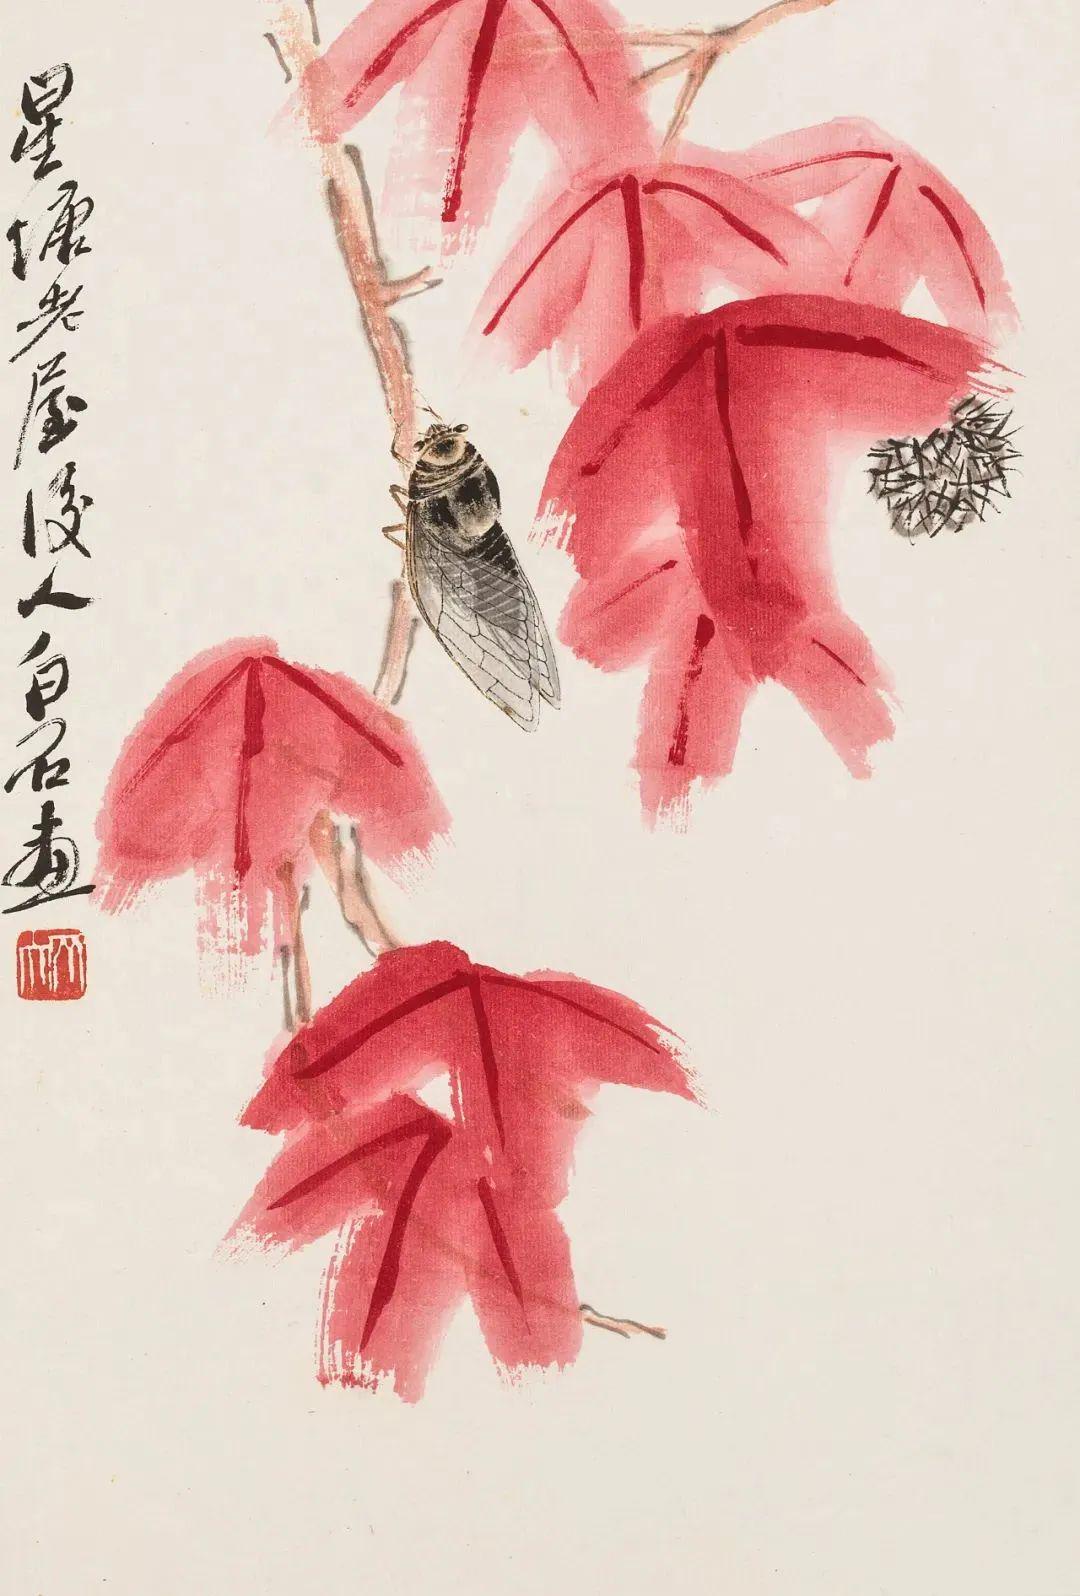 星塘老屋後人白石画